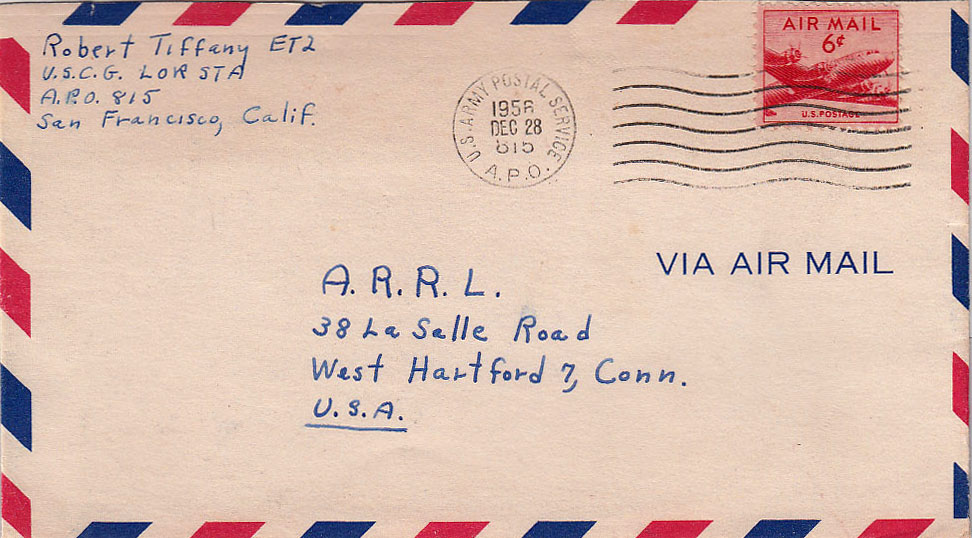 Robert Tiffany ET2
U.S.C.G. LOR STA
A.P.O. 815
San Francisco, Calif.
U.S. ARMY POSTAL SERVICE
1956
DEC 28
815
A.P.O.
AIR MAIL
6¢
U.S. POSTAGE
VIA AIR MAIL
A.R.R.L.
38 La Salle Road
West Hartford 7, Conn.
U.S.A.